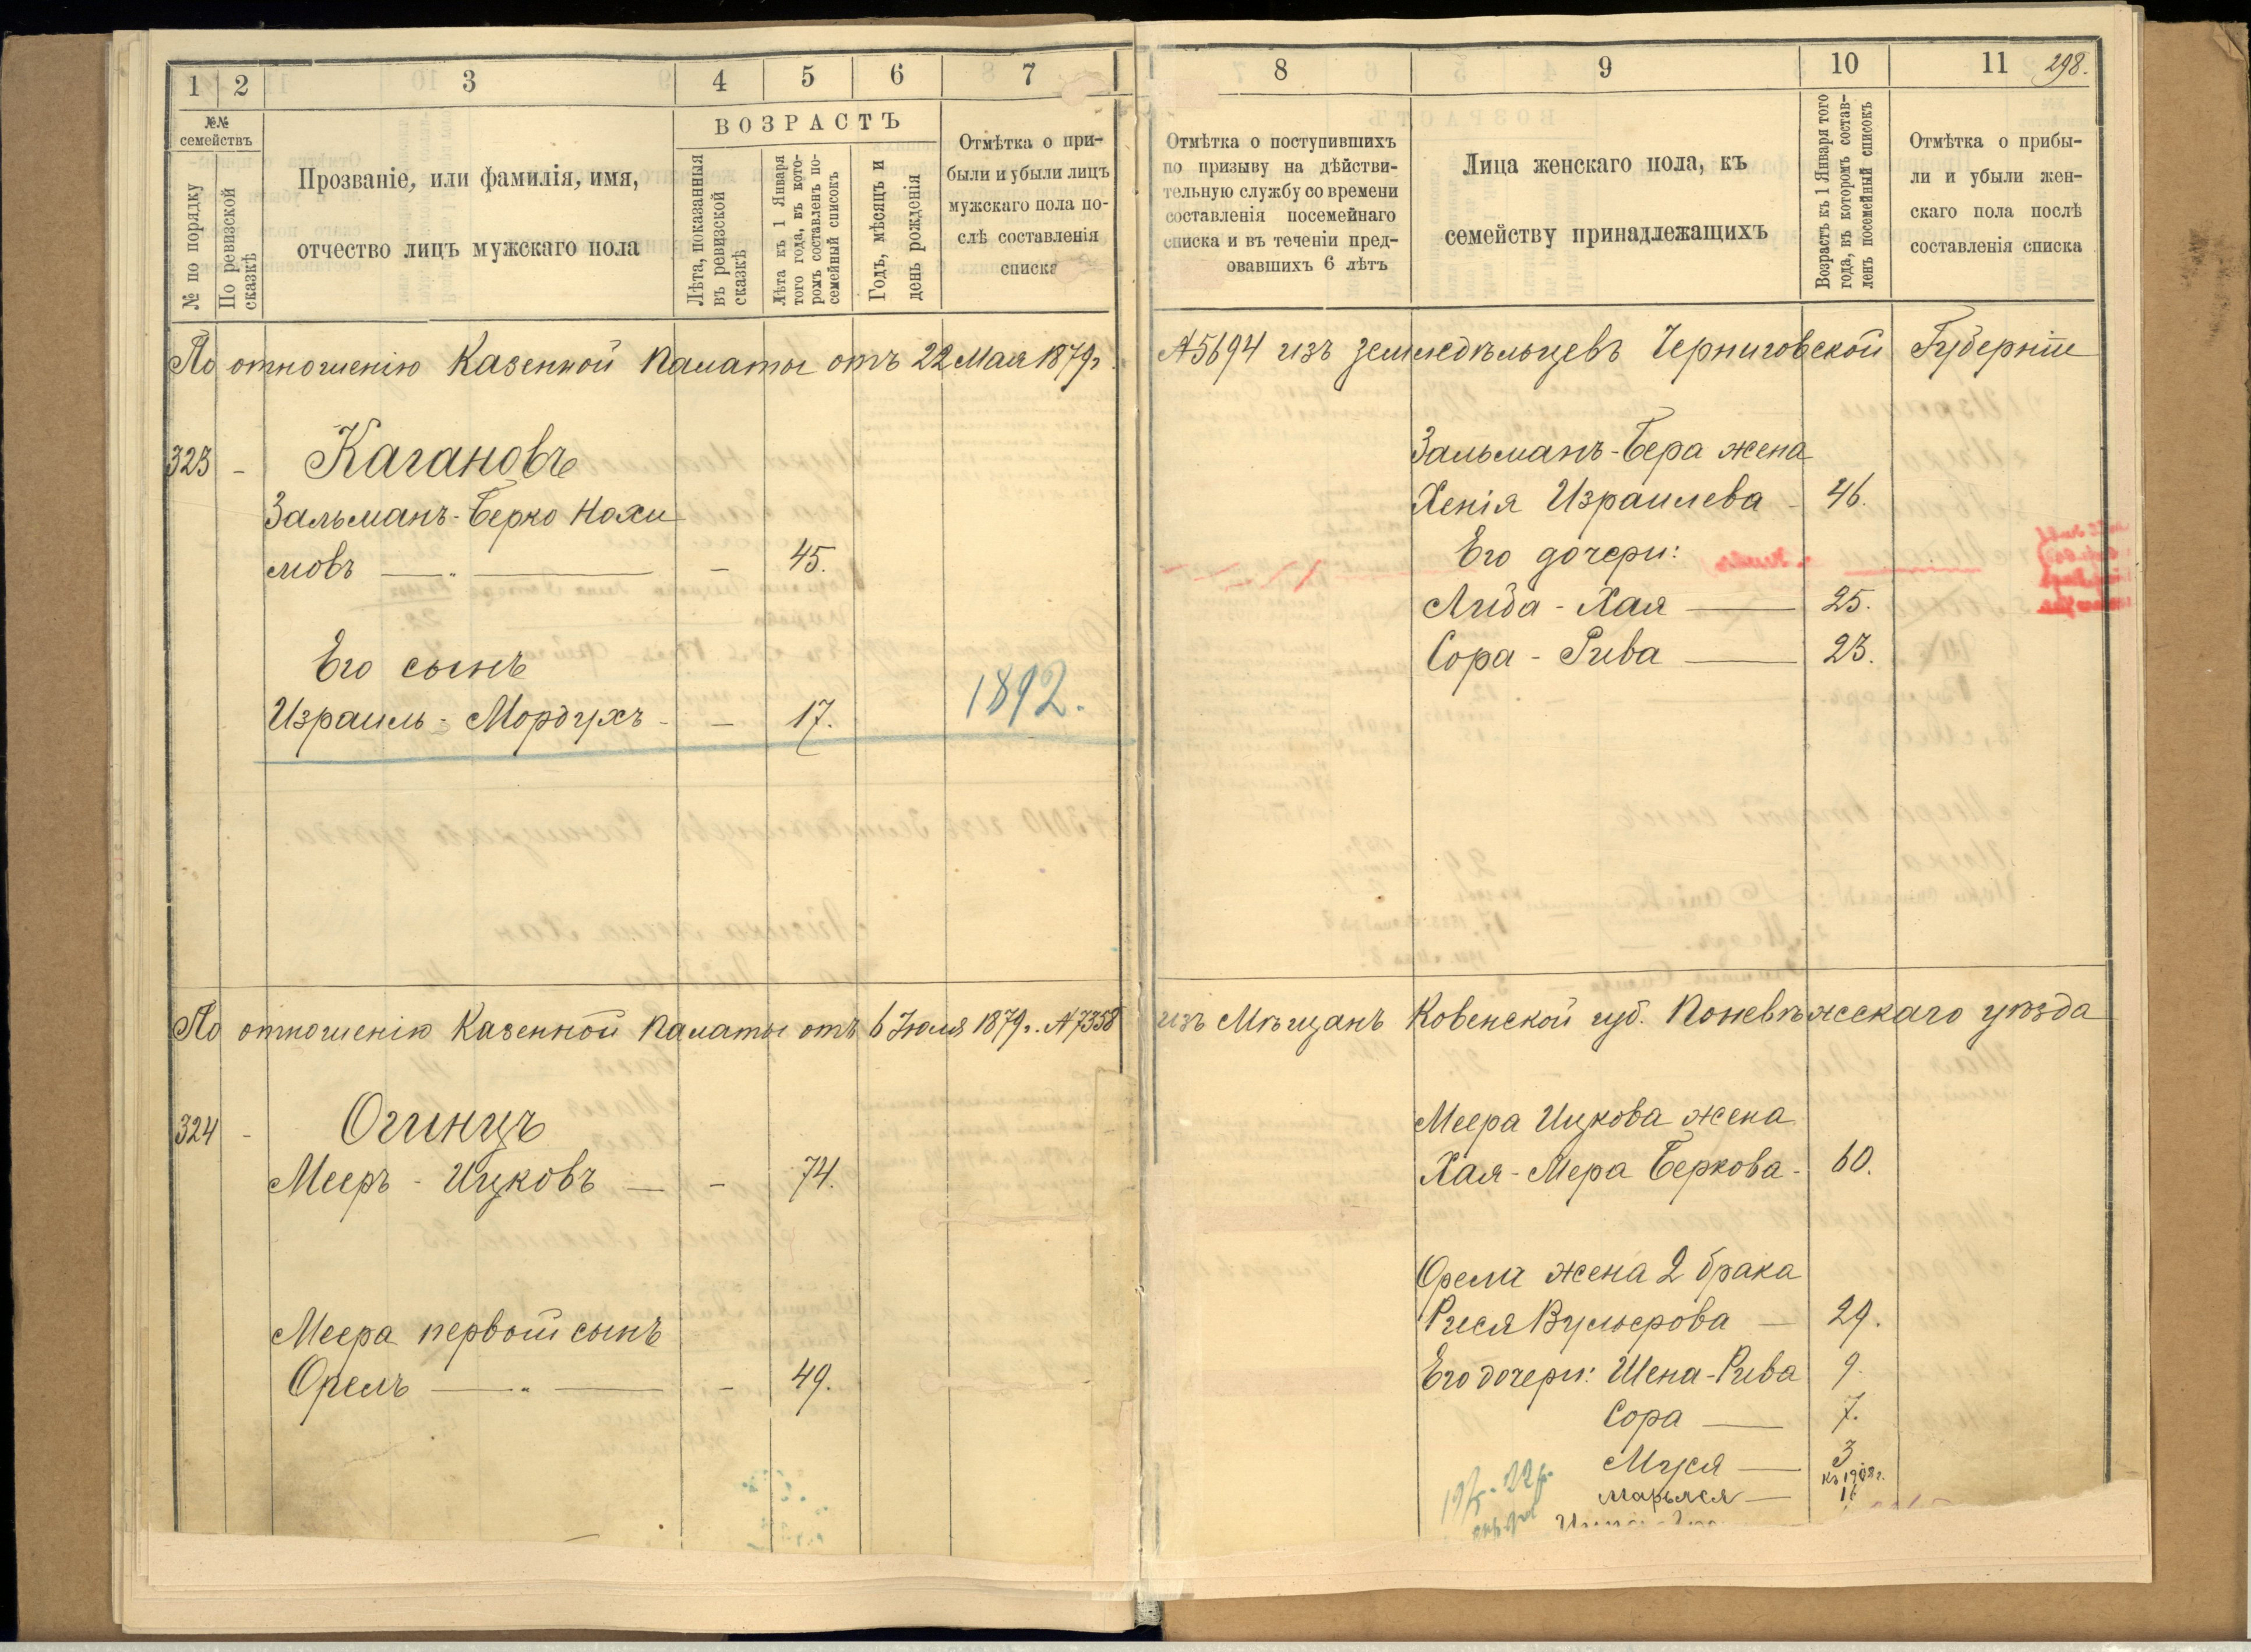 1 2 3 4 5 6 7
№№ семействъ
№ по порядку
По ревизской сказкѣ
Прозваніе, или фамилія, имя,
отчество лицъ мужскаго пола
ВОЗРАСТЪ
Лѣта, показанныя
въ ревизской
сказкѣ
Лѣта къ 1 Января
того года, въ кото-
ромъ составленъ по-
семейный списокъ
Годъ, мѣсяцъ и
день рожденія
Отмѣтка о при-
были и убыли лицъ
мужскаго пола по-
слѣ составленія
списка
По отношенію Казенной Палаты отъ 22 Мая 1879г.
323 - Кагановъ
Зальманъ-Берко Нохи
мовъ — — 45.
Его сынъ
Израиль-Мордухъ - — 17. 1892.
По отношенію Казенной Палаты отъ 6 Іюля 1879г. №7358
324 - Огинцъ
Мееръ - Ицковъ — - 74.
Меера первый сынъ
Орелъ — — - 49.
8 9 10 11 298.
Отмѣтка о поступившихъ
по призыву на дѣйстви-
тельную службу со времени
составленія посемейнаго
списка и въ теченіи пред-
овавшихъ 6 лѣтъ
Лица женскаго пола, къ
семейству принадлежащихъ
Возрастъ къ 1 Января того
года, въ которомъ состав-
ленъ посемейный списокъ
Отмѣтка о прибы-
ли и убыли жен-
скаго пола послѣ
составленія списка
№5694 изъ земледѣльцевъ Черниговской Губерніи
Зальманъ-Бера жена
Хенія Израилева - 46.
Его дочери:
Лида - Хая — 25.
Сора - Рива — 23.
изъ Мѣщанъ Ковенской губ. Поневѣжскаго уѣзда
Меера Ицкова жена
Хая-Мера Беркова - 60.
Орела жена 2 брака
Рися Вульфова — 29.
Его дочери: Шена-Рива 9.
Сора — 7.
Муся — 3
къ 1908г.
Марьяся — 16